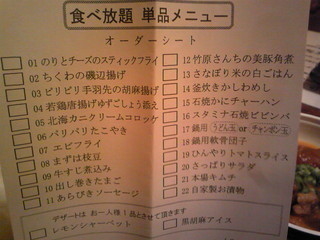 食べ放題 単品メニュー
オーダーシート
01 のりとチーズのスティックフライ
02 ちくわの磯辺揚げ
03 ピリピリ手羽先の胡麻揚げ
04 若鶏唐揚げゆずこしょう添え
05 北海カニクリームコロッケ
06 パリパリたこやき
07 エビフライ
08 まずは枝豆
09 牛すじ煮込み
10 出し巻きたまご
11 あらびきソーセージ
12 竹原さんちの美豚角煮
13 さなぼり米の白ごはん
14 釜炊きかしわめし
15 石焼かにチャーハン
16 スタミナ石焼ビビンバ
17 鍋用 うどん玉 or チャンポン玉
18 鍋用軟骨団子
19 ひんやりトマトスライス
20 さっぱりサラダ
21 本場キムチ
22 自家製お漬物
デザートは お一人様1品とさせて頂きます
レモンシャーベット
黒胡麻アイス